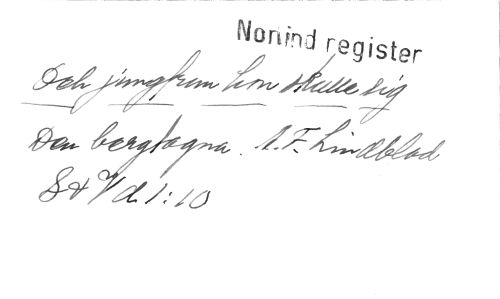 Nonind register
Och jungfrun hon skulle sig
Den bergtagna. A.F. Lindblad
S & V d. 1:10